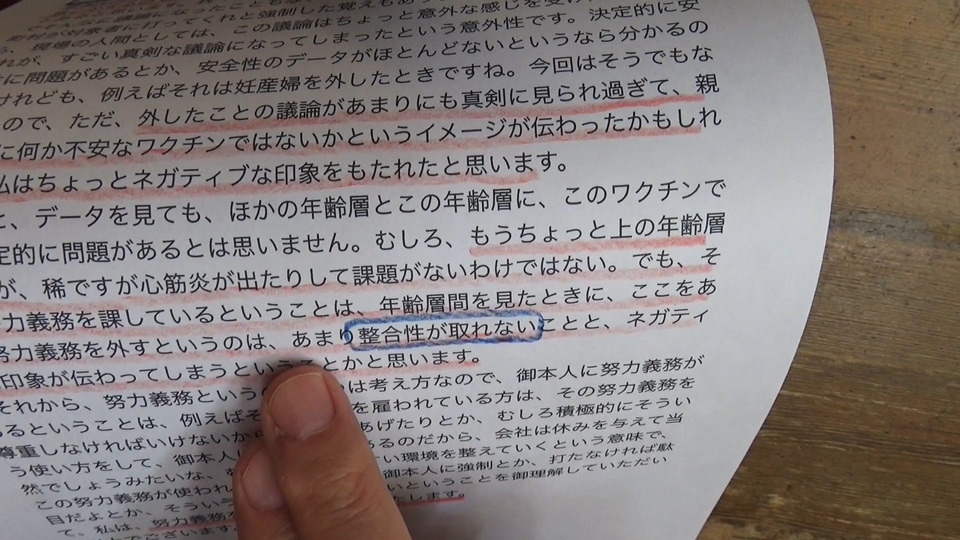 に議論になったことも
制した覚えもあっ
現場の人間としては、この議論はちょっと意外な感じを受け
れが、すごい真剣な議論になってしまったという意外性です。決定的に安
に問題があるとか、安全性のデータがほとんどないというなら分かるの
けれども、例えばそれは妊産婦を外したときですね。今回はそうでもな
ので、ただ、外したことの議論があまりにも真剣に見られ過ぎて、親
に何か不安なワクチンではないかというイメージが伝わったかもしれ
私はちょっとネガティブな印象をもたれたと思います。
、データを見ても、ほかの年齢層とこの年齢層に、このワクチンで
定的に問題があるとは思いません。むしろ、もうちょっと上の年齢層
が、稀ですが心筋炎が出たりして課題がないわけではない。でも、そ
力義務を課しているということは、年齢層間を見たときに、ここをあ
努力義務を外すというのは、あまり整合性が取れないことと、ネガティ
印象が伝わってしまうということかと思います。
それから、努力義務という は考え方なので、御本人に努力義務が
るということは、例えばそ を雇われている方は、その努力義務を
尊重しなければいけないから あげたりとか、むしろ積極的にそうい
う使い方をして、御本人に あるのだから、会社は休みを与えて当
然でしょうみたいな、 い環境を整えていくという意味で、
この努力義務が使われ 御本人に強制とか、打たなければ駄
目だよとか、そういう いということを御理解していただい
て、私は、努力義務を たします。